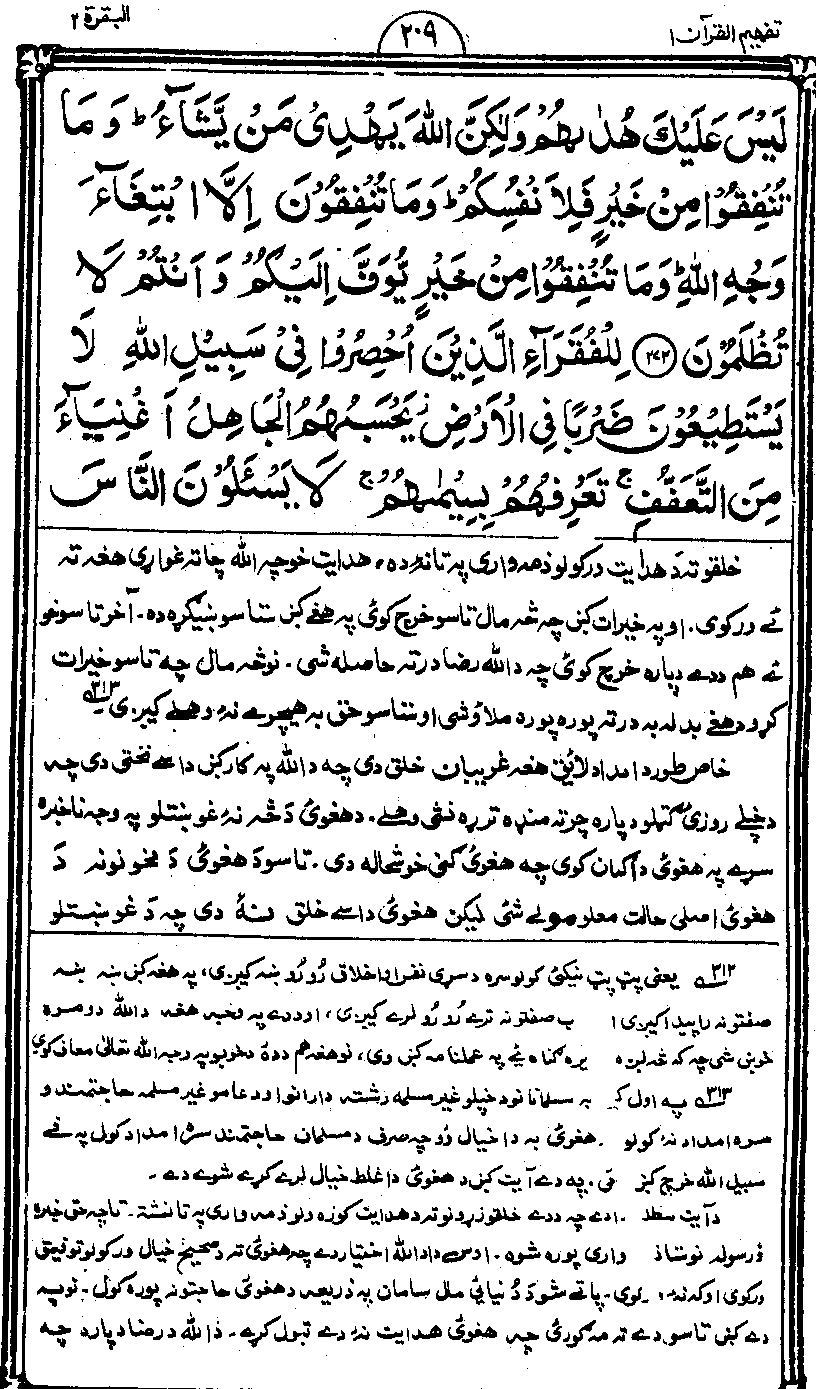 تفهیم القرآن ۱
۲۰۹
البقرة ۲
لَيْسَ عَلَيْكَ هُدٰىهُمْ وَلٰكِنَّ اللّٰهَ يَهْدِىْ مَنْ يَّشَآءُ ؕ وَمَا
تُنْفِقُوْا مِنْ خَيْرٍ فَلِاَنْفُسِكُمْ ؕ وَمَا تُنْفِقُوْنَ اِلَّا ابْتِغَآءَ
وَجْهِ اللّٰهِ ؕ وَمَا تُنْفِقُوْا مِنْ خَيْرٍ يُّوَفَّ اِلَيْكُمْ وَاَنْتُمْ لَا
تُظْلَمُوْنَ ﴿۲۷۲﴾ لِلْفُقَرَآءِ الَّذِيْنَ اُحْصِرُوْا فِىْ سَبِيْلِ اللّٰهِ لَا
يَسْتَطِيْعُوْنَ ضَرْبًا فِى الْاَرْضِ ز يَحْسَبُهُمُ الْجَاهِلُ اَغْنِيَآءَ
مِنَ التَّعَفُّفِ ج تَعْرِفُهُمْ بِسِيْمٰهُمْ ج لَا يَسْئَلُوْنَ النَّاسَ
خلقو ته د هدایت درکولو ذمه واري په تا نه ده، هدایت خو چه الله چا ته غواړي هغه ته
ئے ورکوي. او په خیرات کښ چه څه مال تاسو خرچ کوئ په هغے کښ ستاسو ښیګړه ده۔ آخر تاسو خو
ئے هم ددے دپاره خرچ کوئ چه د الله رضا درته حاصله شي. نو څه مال چه تاسو خیرات
کړو د هغے بدله به درته پوره پوره ملاؤ شي او ستاسو حق به هیچرے نۀ وهلے کیږي ۳۱۳
خاص طور د امداد لائق هغه غریبان خلق دي چه د الله په کار کښ داسے نختي دي چه
د خپلے روزئ ګټلو دپاره چرته منډه ترړه نشي وهلے. د هغوئ د څه نۀ غوښتلو په وجه ناخبره
سړے په هغوئ دا ګمان کوي چه هغوئ ګني خوشحاله دي. تاسو د هغوئ د مخونو نه د
هغوئ اصلي حالت معلومولے شئ لیکن هغوئ داسے خلق نۀ دي چه د غوښتلو
۳۱۲ یعنی پټ پټ نیکي کولو سره د سړي نفس او اخلاق رُو رُو ښه کیږي، په هغه کښ ښه ښه
صفتونه راپیدا کیږي ا ب صفتونه ترے رُو رُو لرے کیږي، او ددے په وجه هغه د الله دومره
خوښ شي چه که څه لږه ډیره ګناه ئے په عملنامه کښ وي، نو هغه هم ددۀ د خوبو په وجه الله تعالیٰ معاف کوي
۳۱۳ په اول کښ به مسلمانانو د خپلو غیر مسلمه رشته دارانو او د عامو غیر مسلمه حاجتمندو
سره امداد نه کولو هغوئ به دا خیال وو چه صرف د مسلمان حاجتمند سره امداد کول په فی
سبیل الله خرچ کښ دي. په دے آیت کښ د هغوئ دا غلط خیال لرے کړے شوے دے.
د آیت مطلب دا دے چه ددے خلقو زړونو ته د هدایت کوزولو ذمه واري په تا نشته. تا چه حق خبره
ورسوله نو ستا ذمه واري پوره شوه. اوس دا د الله اختیار دے چه هغوئ ته د صحیح خیال ورکولو توفیق
ورکوي او که نه ورکوي. پاتے شو د دُنیائي مال سامان په ذریعه د هغوئ حاجتونه پوره کول. نو په
دے کښ تاسو دے ته مه ګورئ چه هغوئ هدایت نۀ دے قبول کړے. د الله د رضا دپاره چه